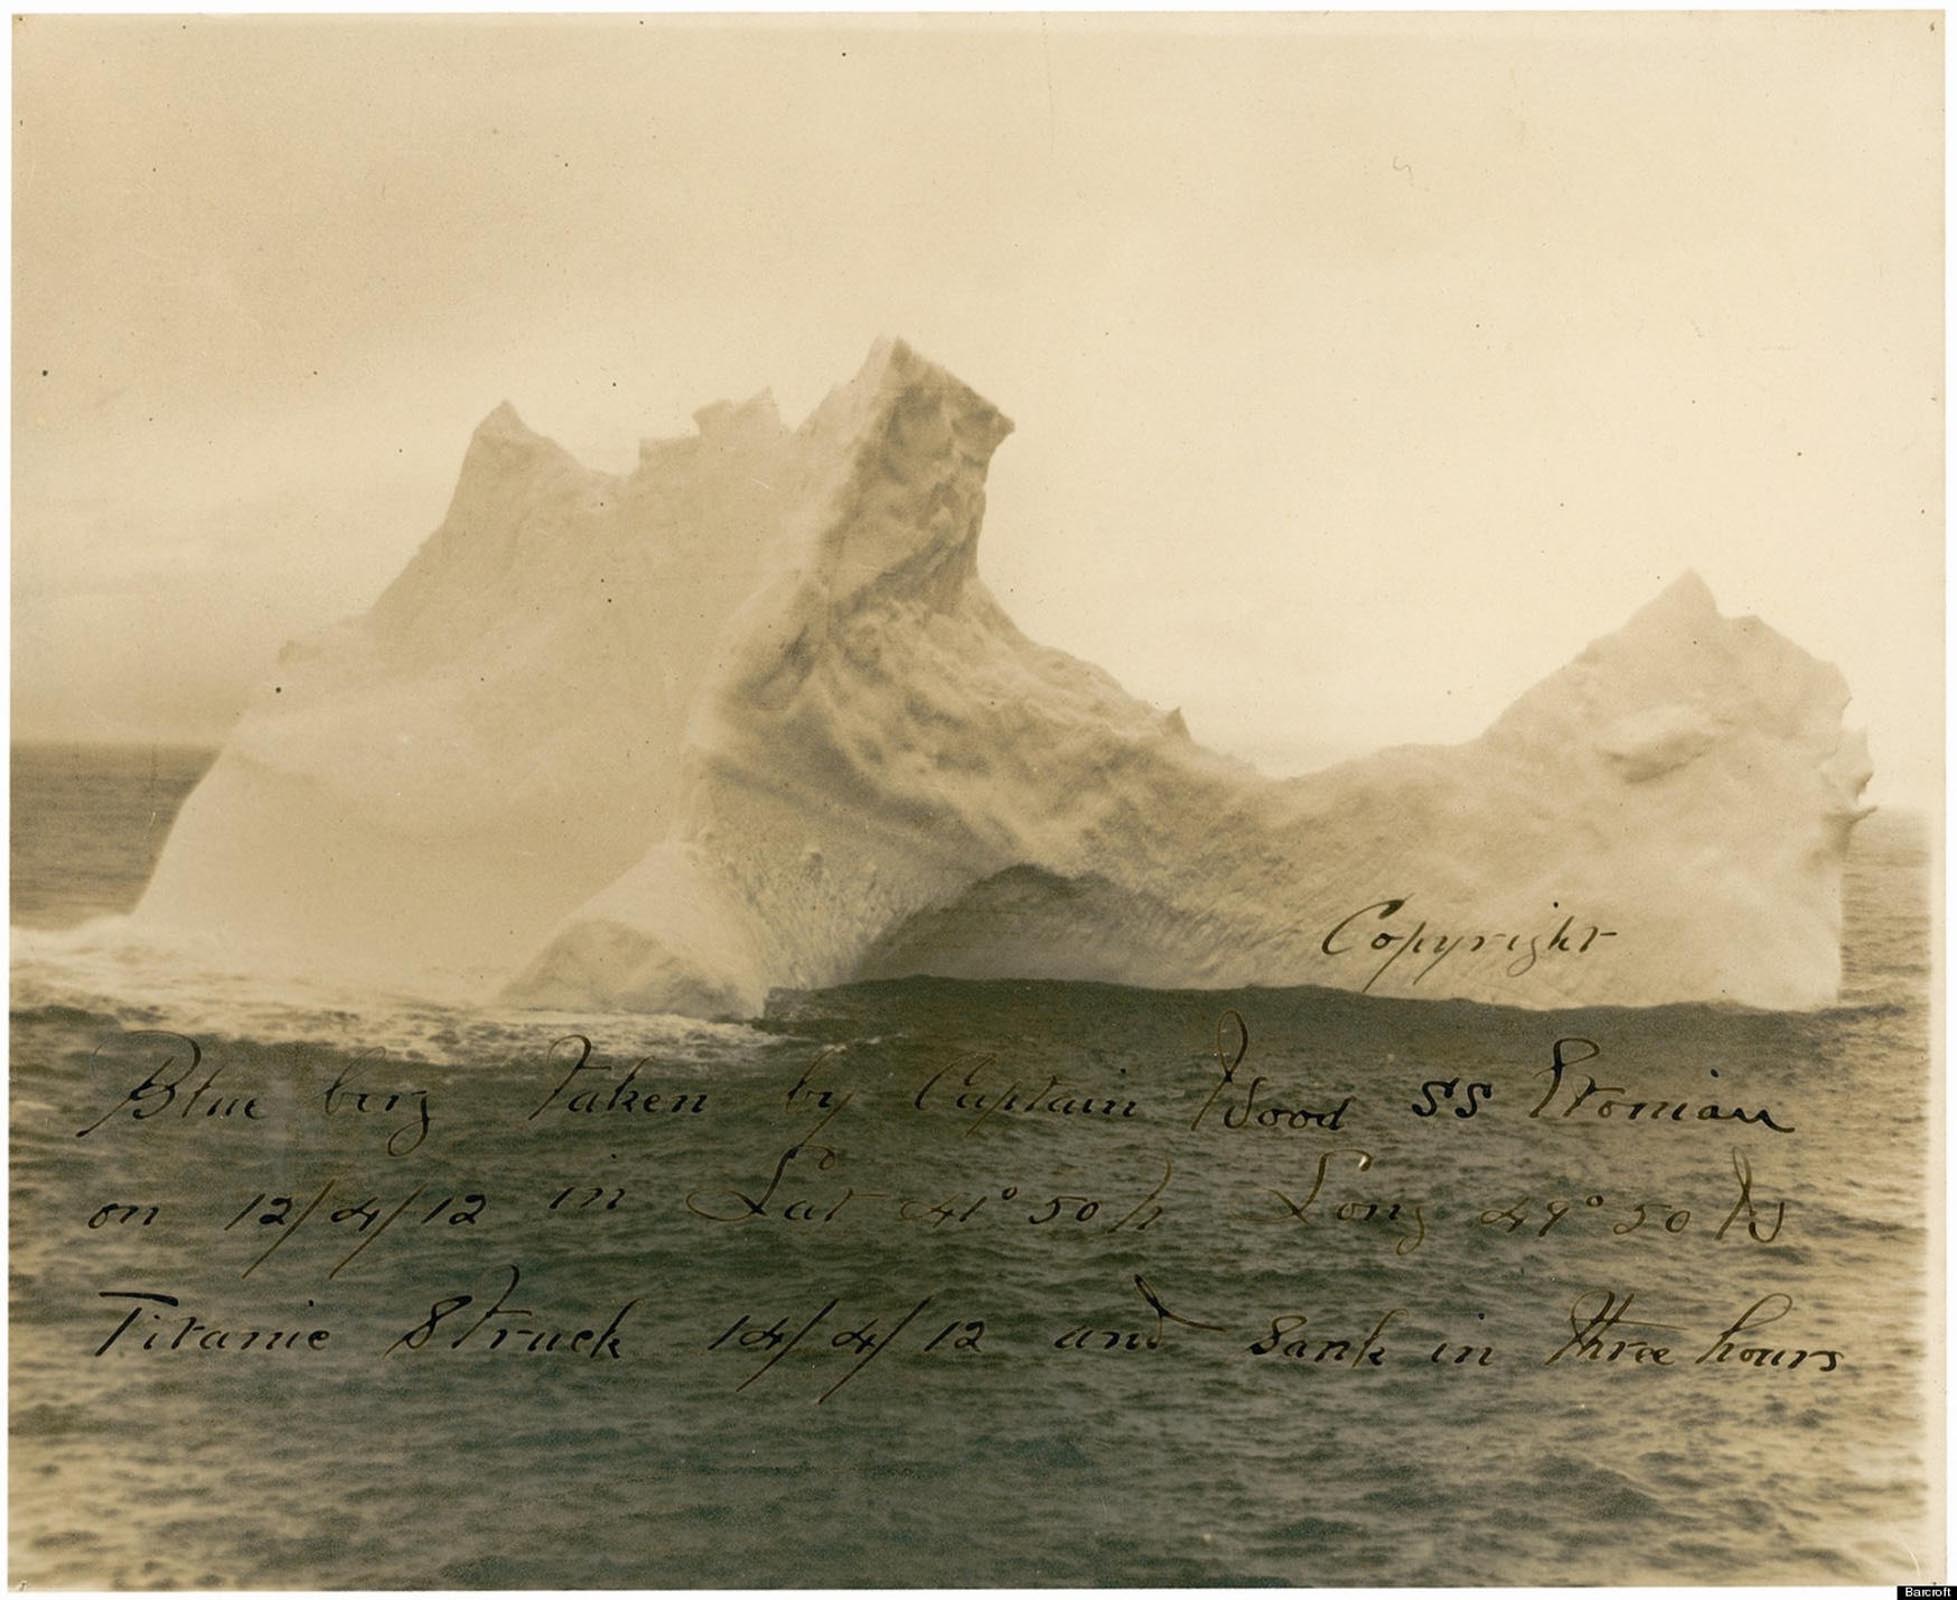 Copyright
Blue berg taken by Captain Wood SS Etonian
on 12/4/12 in Lat 41° 50 N Long 49° 50 W
Titanic Struck 14/4/12 and sank in three hours
Barcroft